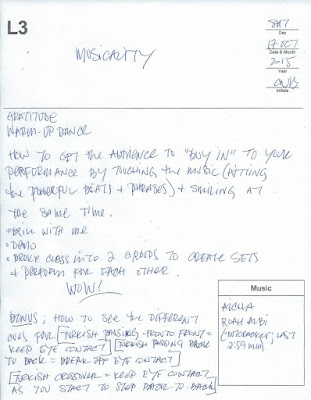 L3
MUSICALITY
SAT
Day
17 OCT
Date & Month
2015
Year
Initials
GRATITUDE
WARM-UP DANCE
HOW TO GET THE AUDIENCE TO "BUY IN" TO YOUR
PERFORMANCE BY TOUCHING THE MUSIC (HITTING
the POWERFUL BEATS + PHRASES) + SMILING AT
THE SAME TIME.
• DRILL WITH ME
• DEMO
• BROKE CLASS INTO 2 GROUPS TO CREATE SETS
+ PERFORM FOR EACH OTHER.
WOW!
BONUS: HOW TO SEE THE DIFFERENT
CUES FOR [TURKISH PASSING FRONT TO FRONT =
KEEP EYE CONTACT] [TURKISH PASSING BACK
TO BACK = BREAK OFF EYE CONTACT]
[TURKISH CROSSOVER = KEEP EYE CONTACT
AS YOU START TO STEP BACK-TO-BACK]
Music
AICHA
ROAH ALBI
LAST
2:59 min)